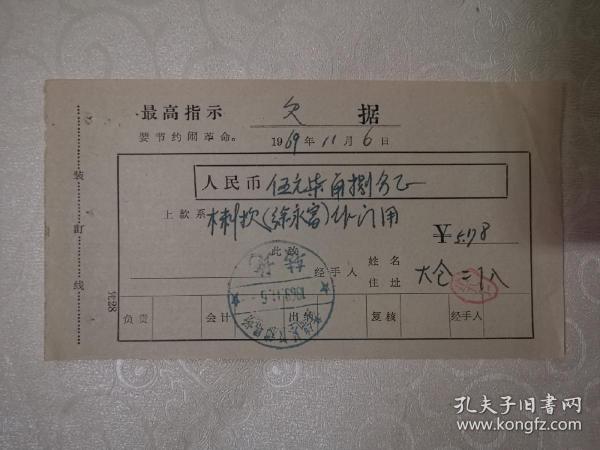 最高指示
要节约闹革命。
欠 据
1969年11月6日
人民币 伍元柒角捌分正
上款系 材料款(徐永富)作门用
￥5.78
此致
转讫
1969.11.6
经手人 姓名 住址
负责 会计 出纳 复核 经手人
装订线
孔夫子旧书网
www.kongfz.com